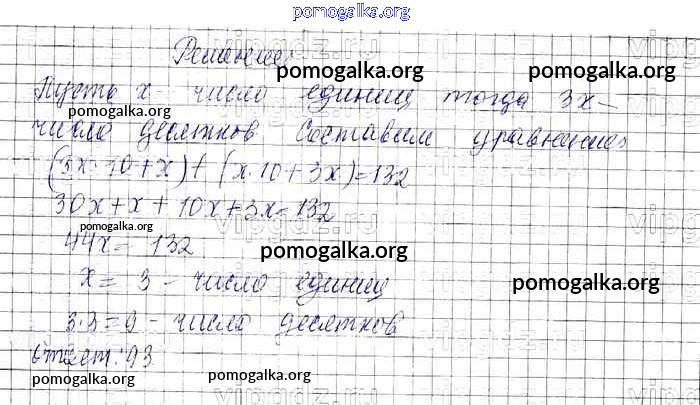 pomogalka.org
Решение:
Пусть x - число единиц тогда 3x -
число десятков. Составим уравнение:
(3x·10+x)+(x·10+3x)=132
30x+x+10x+3x=132
44x=132
x=3 - число единиц
3·3=9 - число десятков
Ответ: 93
pomogalka.org
pomogalka.org
pomogalka.org
pomogalka.org
pomogalka.org
pomogalka.org
pomogalka.org
pomogalka.org
vipgdz.ru
vipgdz.ru
vipgdz.ru